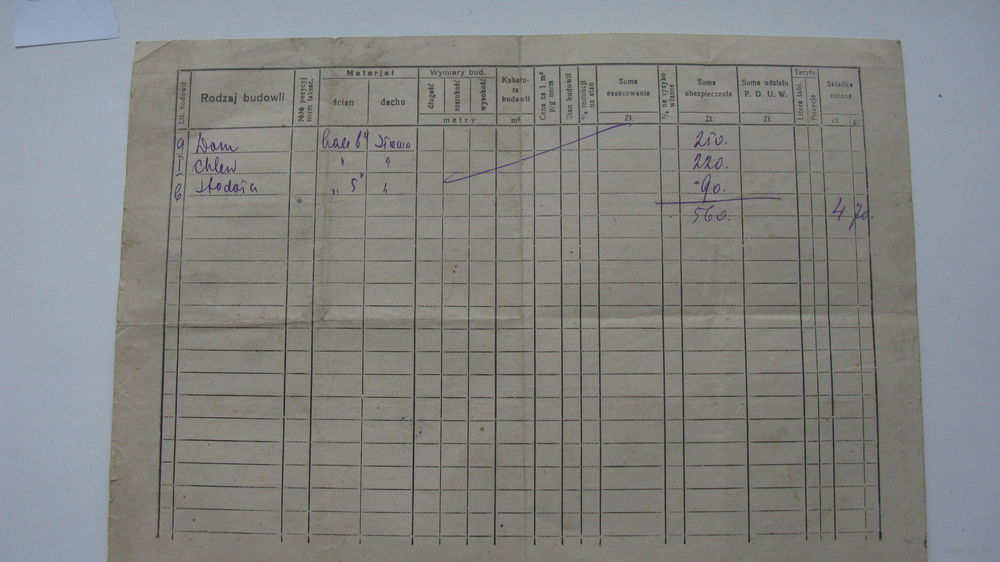 Lit. budowli Rodzaj budowli №№ pozycyj norm taksac. Materjał Wymiary bud. Kubatura budowli Cena za 1 m³ p/g norm Stan budowli % redukcji na stan Suma oszacowania % na ryzyko własne Suma ubezpieczenia Suma udziału P. D. U. W. Taryfa Składka roczna
ścian dachu długość szerokość wysokość Litera tabl. Pozycja
metry m³ Zł. Zł. Zł. Zł. gr.
Dom 6" 250.
Chlew " " 220.
Stodoła " 5" " 90.
560. 4 70.